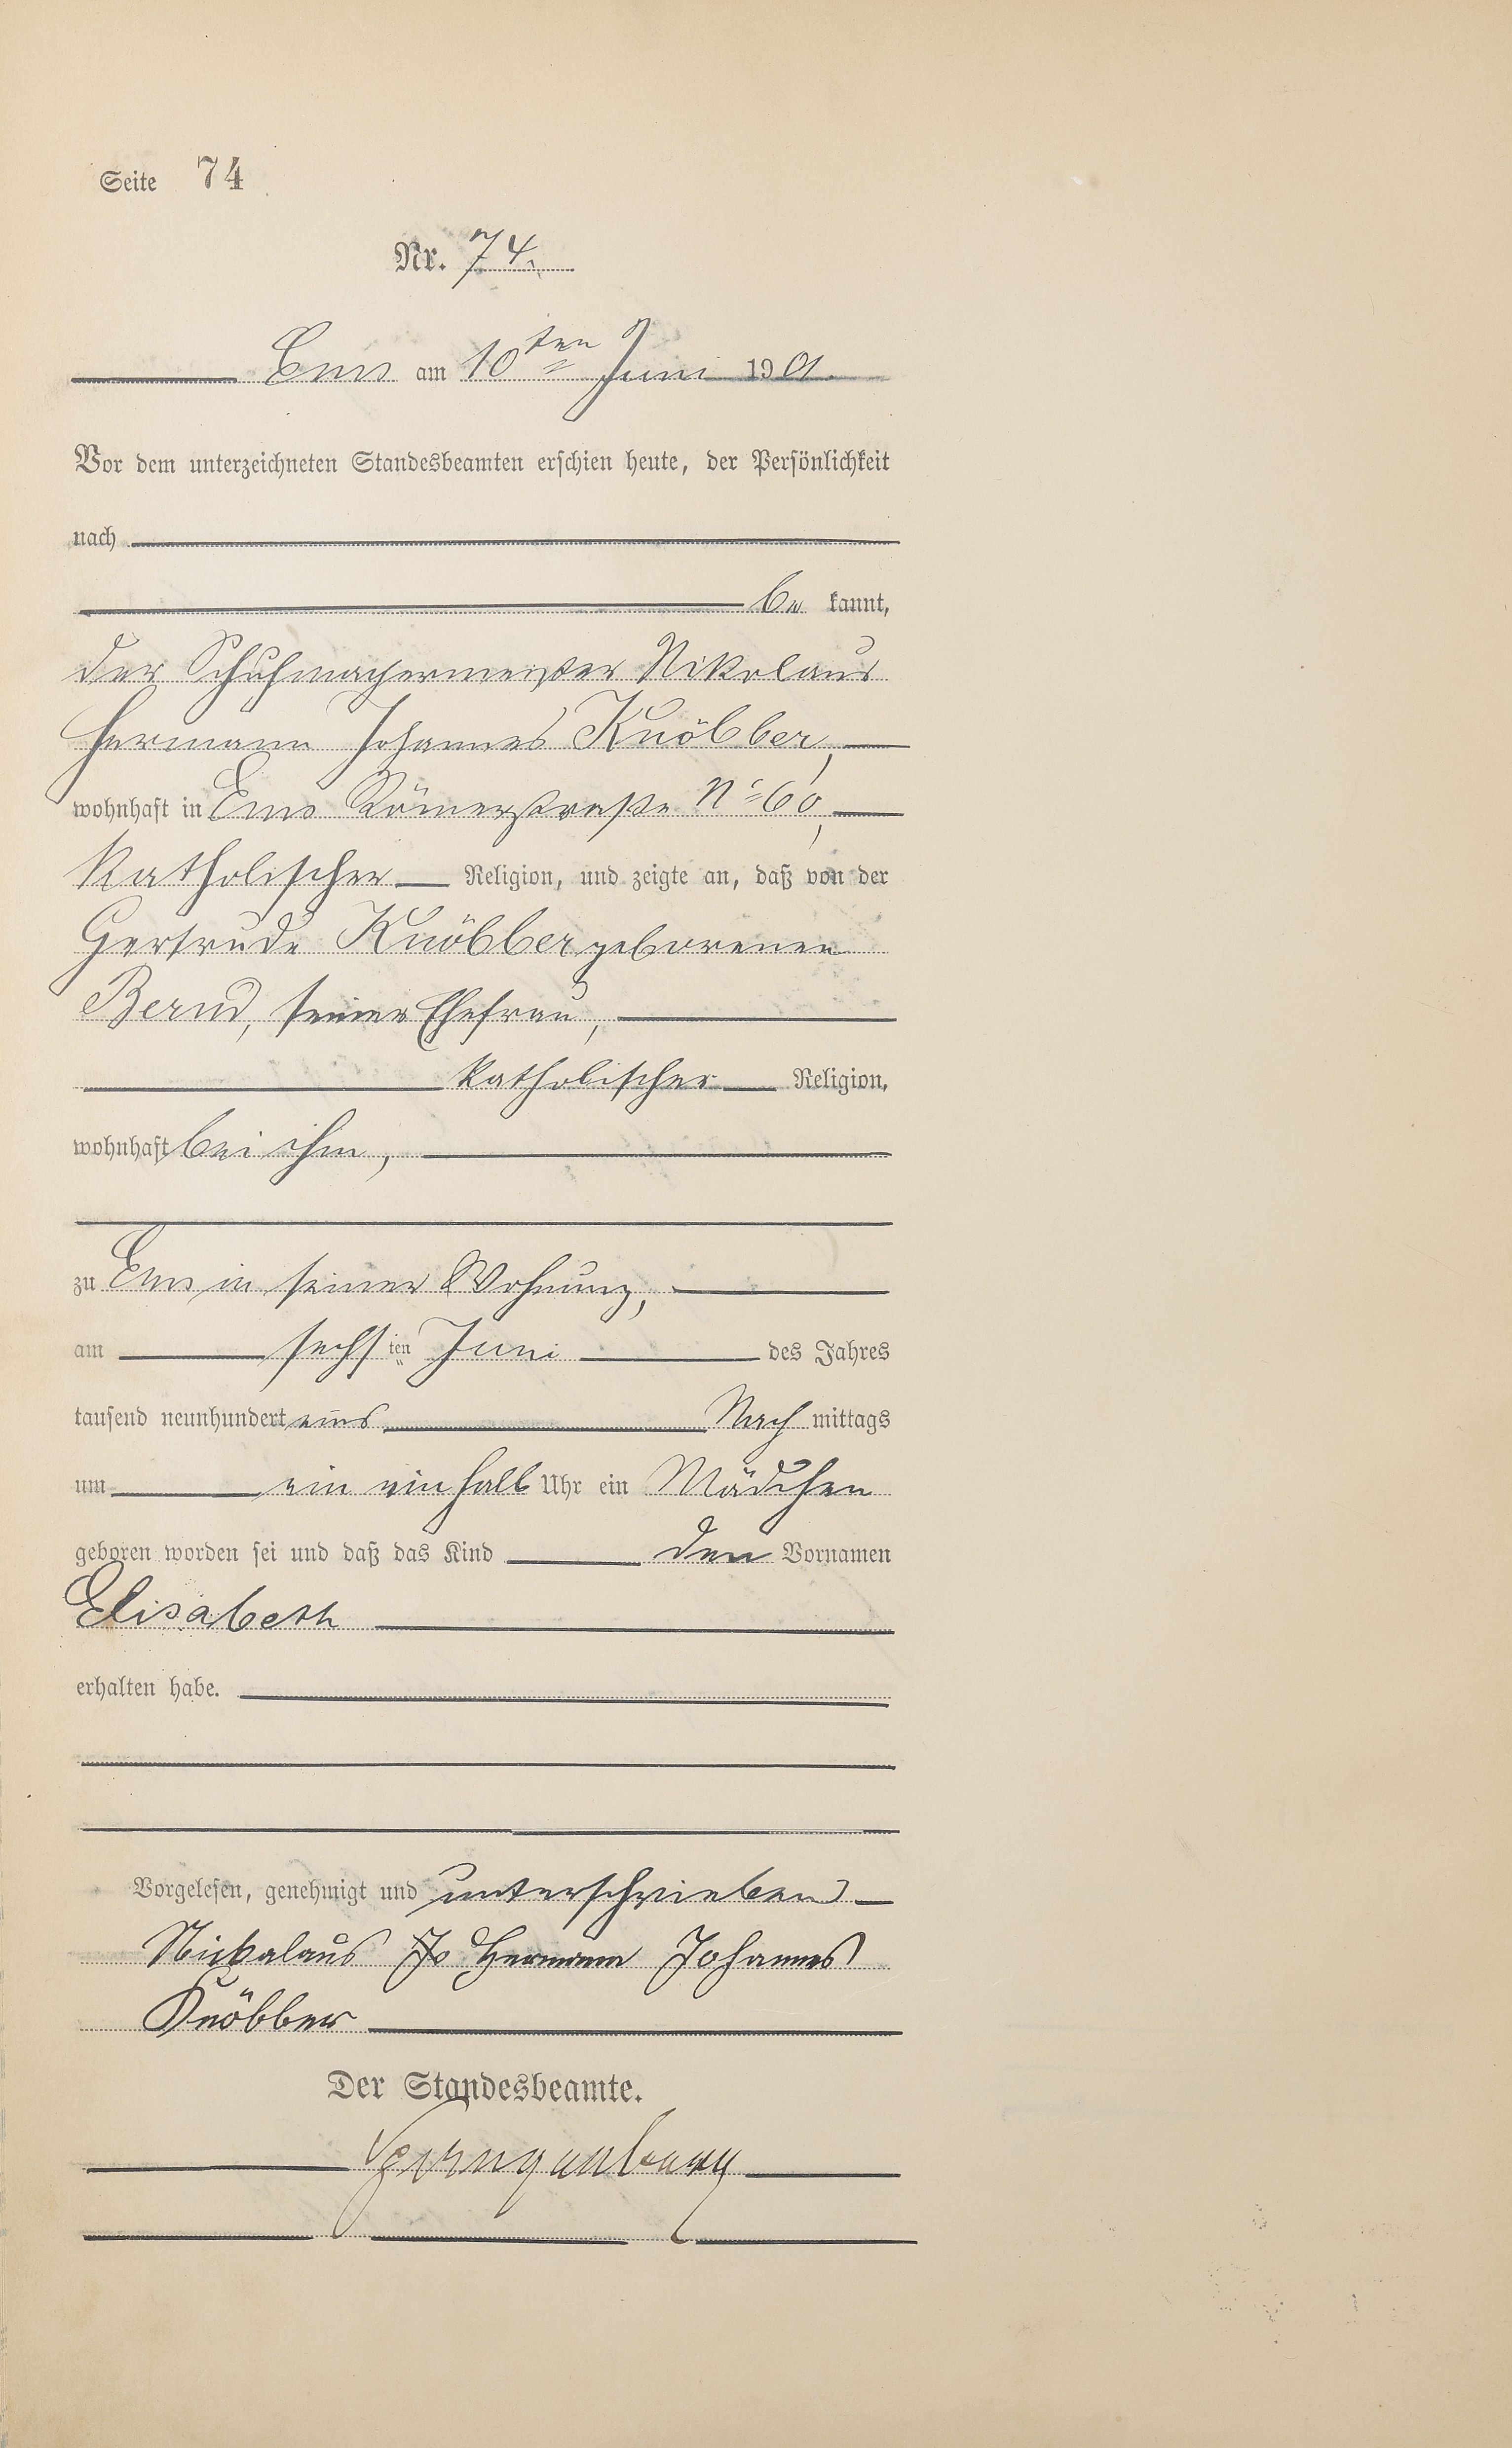 Seite 74
Nr. 74.
Ems am 10ten Juni 1901.
Vor dem unterzeichneten Standesbeamten erschien heute, der Persönlichkeit
nach
be kannt,
der Schuhmachermeister Nikolaus
Hermann Johannes Knöbber,
wohnhaft in Ems Römerstraße No 60,
katholischer Religion, und zeigte an, daß von der
Gertrude Knöbber geborenen
Bernd, seiner Ehefrau,
katholischer Religion,
wohnhaft bei ihm,
zu Ems in seiner Wohnung,
am sechsten Juni des Jahres
tausend neunhundert eins Nach mittags
um ein einhalb Uhr ein Mädchen
geboren worden sei und daß das Kind den Vornamen
Elisabeth
erhalten habe.
Vorgelesen, genehmigt und unterschrieben
Nickalaus Jo Hermann Johannes
Knöbber
Der Standesbeamte.